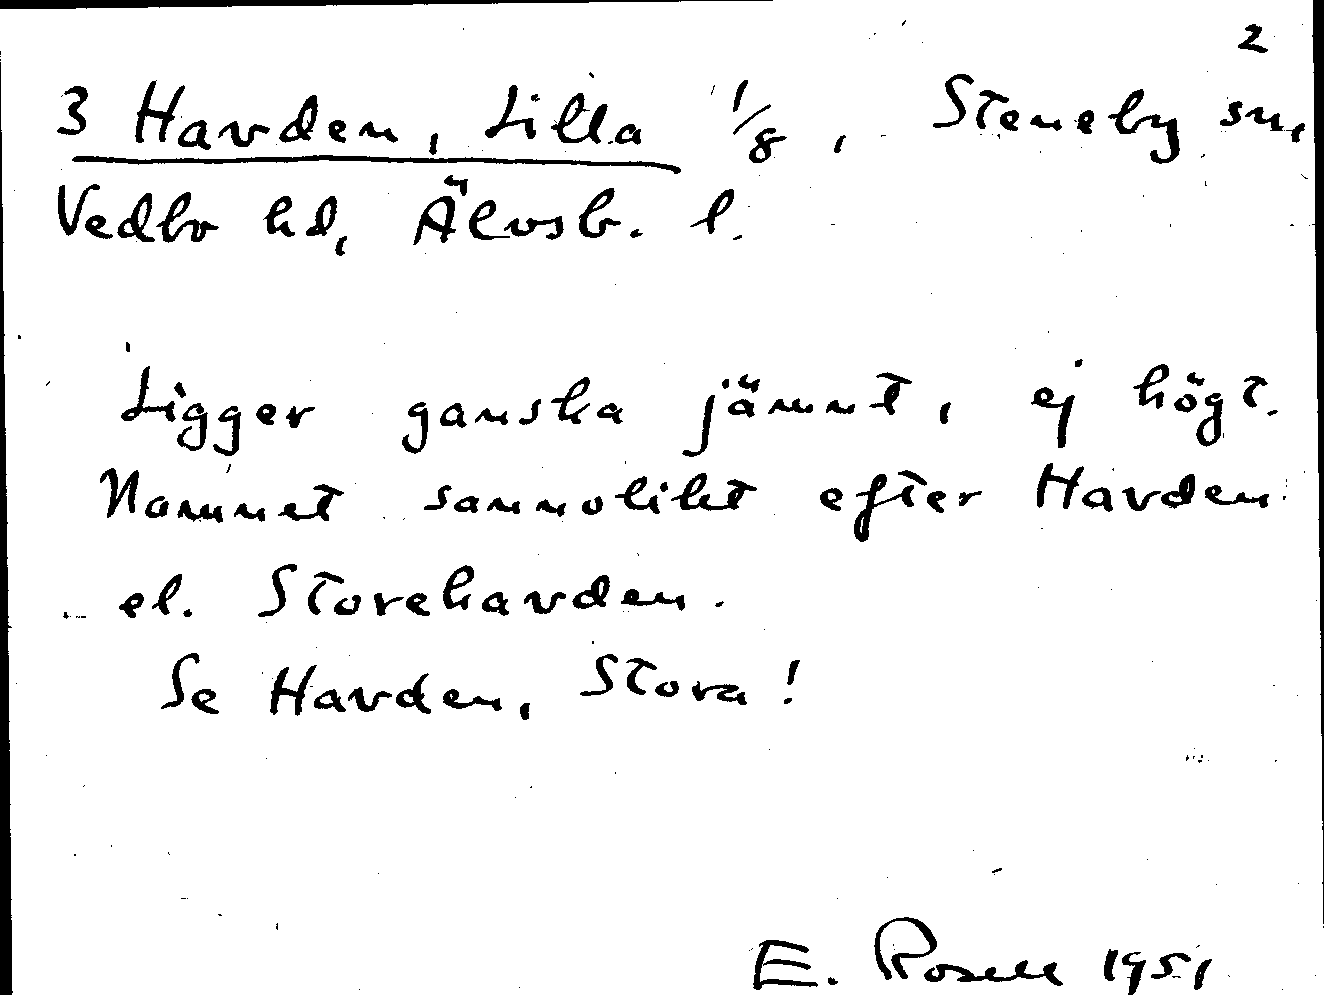 2
3 Havden, Lilla 1/8, Steneby sn,
Vedbo hd, Älvsb. l.
Ligger ganska jämnt, ej högt.
Namnet sannolikt efter Havden
el. Storehavden.
Se Havden, Stora!
E. Rosell 1951